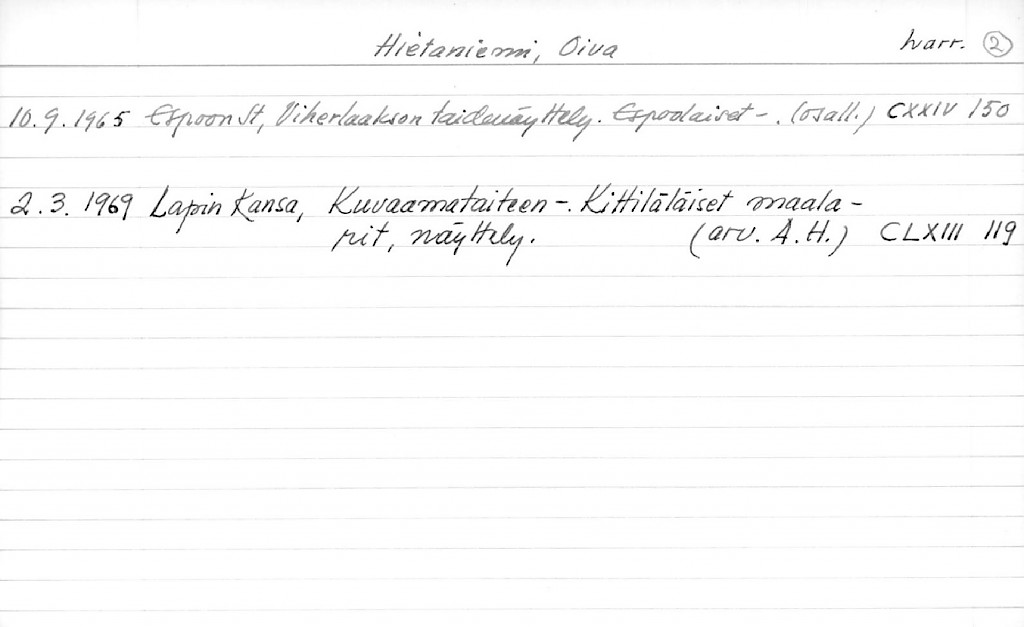 Hietaniemi, Oiva harr. 2
10.9.1965 Espoon St, Viherlaakson taidenäyttely. Espoolaiset -. (osall.) CXXIV 150
2.3. 1969 Lapin Kansa, Kuvaamataiteen -. Kittiläläiset maala-
rit, näyttely. (arv. A.H.) CLXIII 119